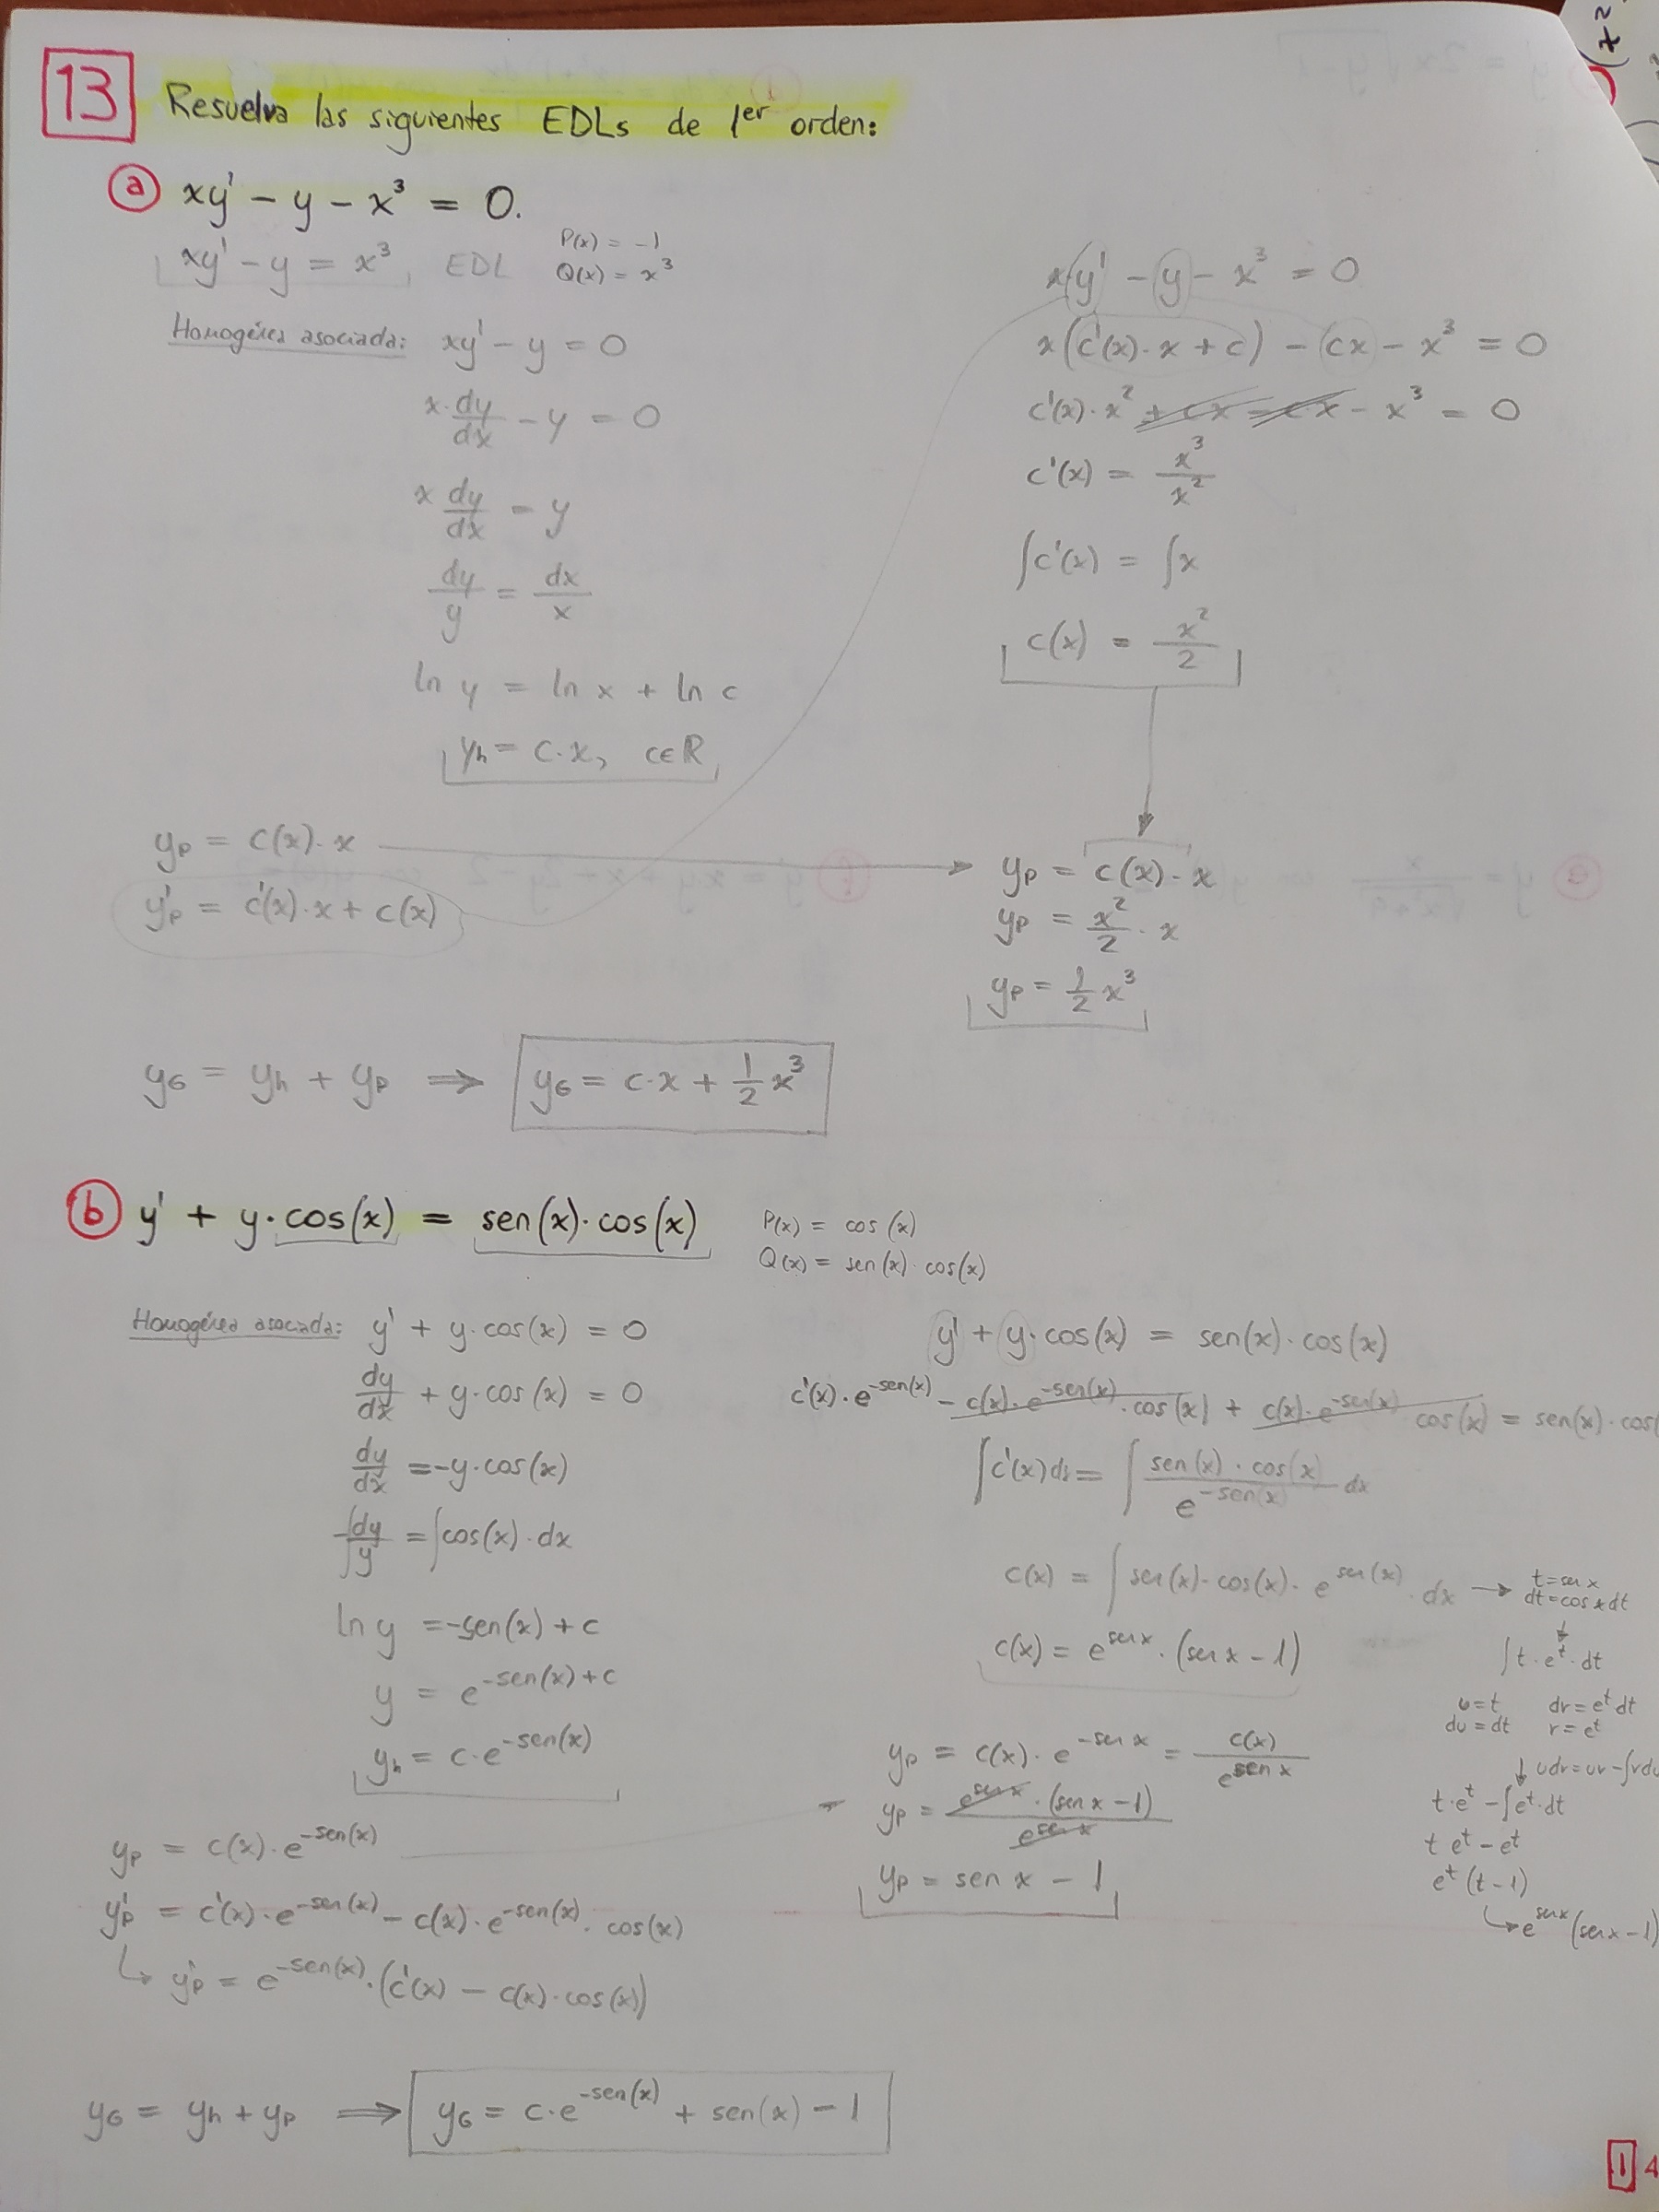 13 Resuelva las siguientes EDLs de 1er orden:
a xy' - y - x³ = 0.
xy' - y = x³ EDL P(x) = -1
Q(x) = x³
Homogénea asociada: xy' - y = 0
x · dy/dx - y = 0
x dy/dx = y
dy/y = dx/x
ln y = ln x + ln c
yh = c·x, c∈ℝ
yp = c(x)·x
y'p = c'(x)·x + c(x)
xy' - y - x³ = 0
x(c'(x)·x + c) - (cx - x³ = 0
c'(x)·x² + cx - cx - x³ = 0
c'(x) = x³/x²
∫c'(x) = ∫x
c(x) = x²/2
yp = c(x)·x
yp = x²/2 · x
yp = 1/2 x³
yG = yh + yp ⇒ yG = c·x + 1/2 x³
b y' + y·cos(x) = sen(x)·cos(x) P(x) = cos(x)
Q(x) = sen(x)·cos(x)
Homogénea asociada: y' + y·cos(x) = 0
dy/dx + y·cos(x) = 0
dy/dx = -y·cos(x)
-∫dy/y = ∫cos(x)·dx
ln y = -sen(x) + c
y = e^-sen(x)+c
yh = c·e^-sen(x)
yp = c(x)·e^-sen(x)
y'p = c'(x)·e^-sen(x) - c(x)·e^-sen(x)·cos(x)
↳ y'p = e^-sen(x)·(c'(x) - c(x)·cos(x))
y' + y·cos(x) = sen(x)·cos(x)
c'(x)·e^-sen(x) - c(x)·e^-sen(x)·cos(x) + c(x)·e^-sen(x) cos(x) = sen(x)·cos(
∫c'(x)dx = ∫ sen(x)·cos(x)/e^-sen(x) dx
c(x) = ∫ sen(x)·cos(x)·e^sen(x)·dx → t = sen x
dt = cos x dt
c(x) = e^sen x·(sen x - 1)
∫t·e^t·dt
u = t dv = e^t dt
du = dt v = e^t
↓ udv = uv - ∫vdu
t·e^t - ∫e^t·dt
t e^t - e^t
e^t (t - 1)
↳ e^sen x (sen x - 1)
yp = c(x)·e^-sen x = c(x)/e^sen x
yp = e^sen x·(sen x - 1)/e^sen x
yp = sen x - 1
yG = yh + yp ⇒ yG = c·e^-sen(x) + sen(x) - 1
1 4